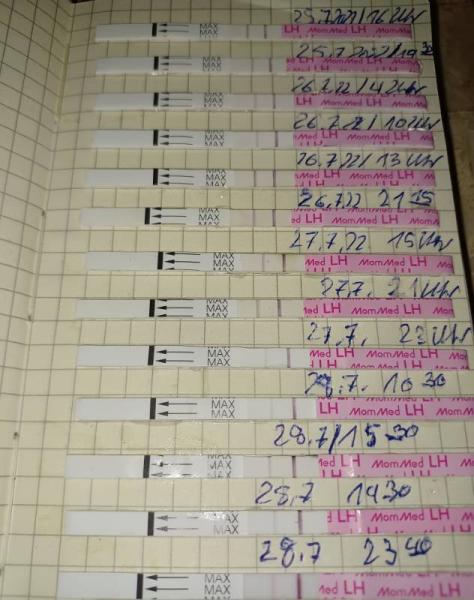 25.7.22/16 Uhr
MAX
MAX LH MomMed LH
25.7.2022/19 30
MAX MomMed LH MomMed
26.7.22/4 Uhr
MAX
MAX LH MomMed LH
26.7.22/10 Uhr
MAX Med LH MomMed LH
MAX
26.7.22/13 Uhr
MAX Med LH MomMed LH
MAX
26.7.22 21 15
MAX LH MomMed LH
MAX
27.7.22 15 Uhr
MAX
MAX MomMed LH MomMed
27.7. 21 Uhr
MAX
MAX LH MomMed LH
27.7. 23 Uhr
MAX Med LH MomMed
MAX LH
28.7. 10 30
MAX
MAX MomMed LH MomMed
28.7/15 30
MAX
MAX Med LH MomMed LH
28.7 19 30
MAX LH MomMed LH
MAX
28.7 23 40
MAX
MAX Med LH MomMed LH